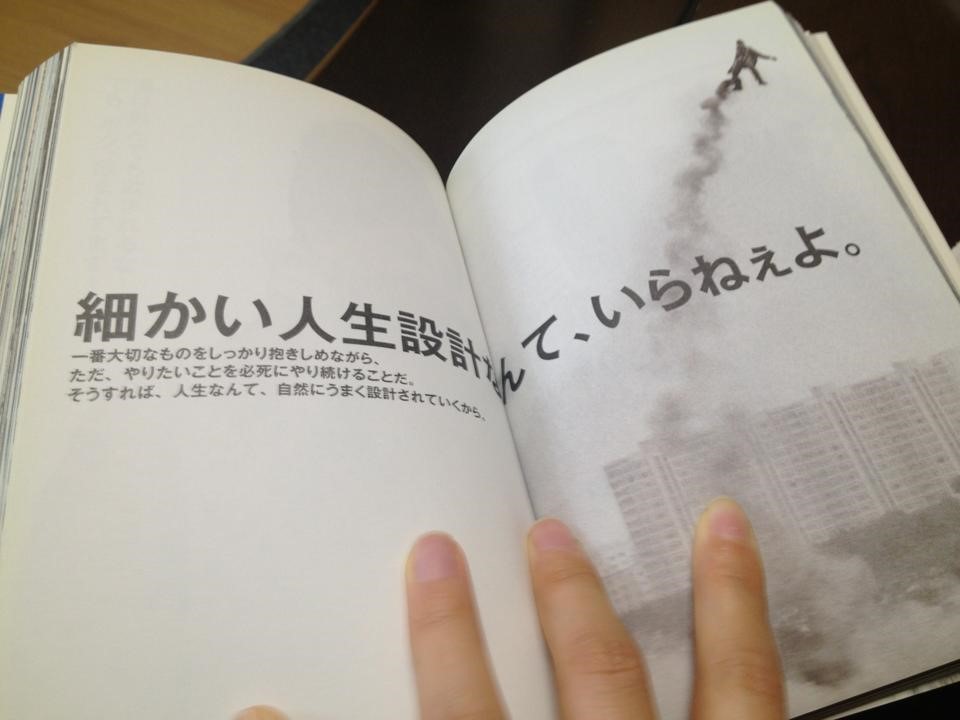 細かい人生設計なんて、いらねぇよ。
一番大切なものをしっかり抱きしめながら、
ただ、やりたいことを必死にやり続けることだ。
そうすれば、人生なんて、自然にうまく設計されていくから。